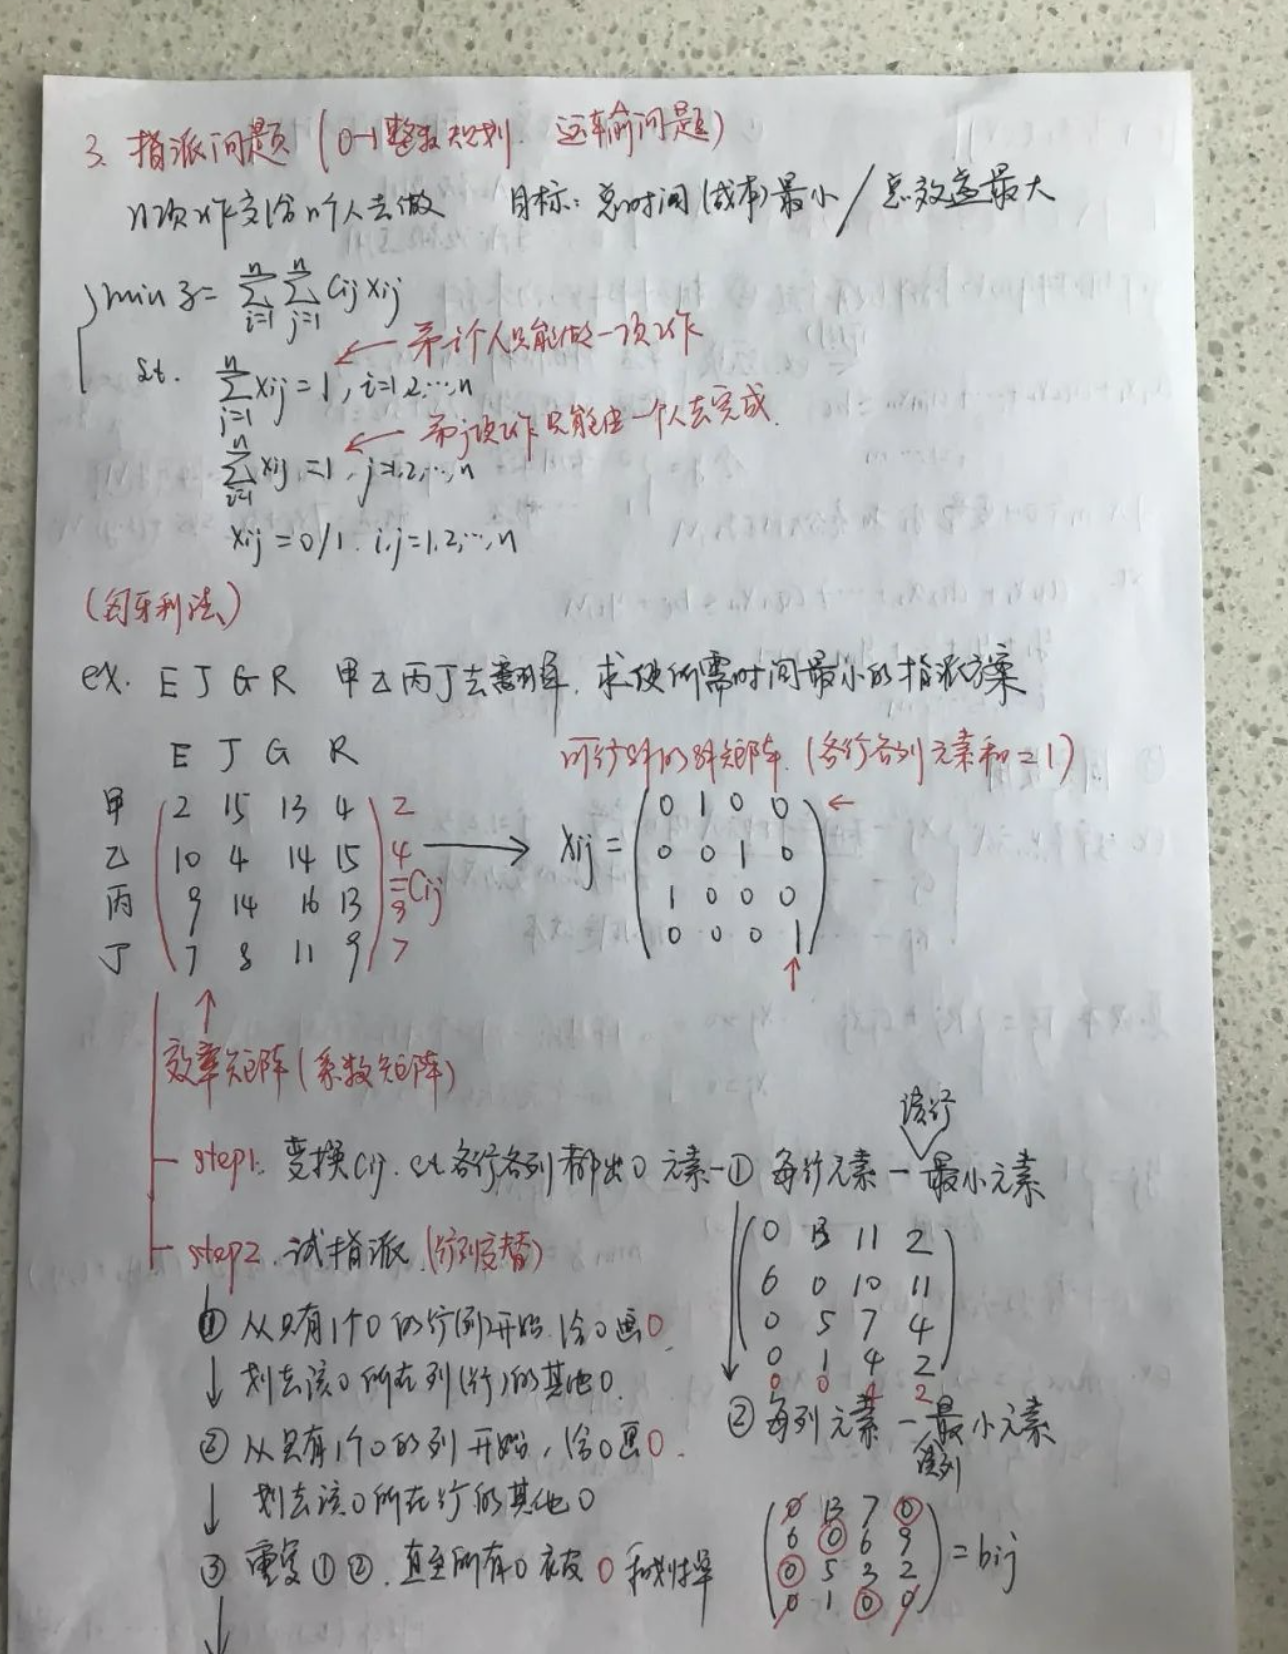 3. 指派问题 (0-1整数规划. 运输问题)
n项工作交给n个人去做 目标: 总时间(成本)最小 / 总效率最大
min z = ∑_{i=1}^{n} ∑_{j=1}^{n} Cij Xij
← 第i个人只能做一项工作
st. ∑_{j=1}^{n} Xij = 1, i=1,2,…,n
← 第j项工作只能由一个人去完成.
∑_{i=1}^{n} Xij = 1, j=1,2,…,n
Xij = 0/1. i,j=1,2,…,n
(匈牙利法)
ex. E J G R 甲乙丙丁去翻译, 求使所需时间最小的指派方案
E J G R
可行解的解矩阵. (各行各列元素和=1)
甲 2 15 13 4 2
乙 10 4 14 15 4
丙 9 14 16 13 9
丁 7 8 11 9 7
=Cij
→ Xij =
0 1 0 0 ←
0 0 1 0
1 0 0 0
0 0 0 1
↑
↑
效率矩阵(系数矩阵)
该行
step1. 变换Cij. st.各行各列都出0元素-① 每行元素 - 最小元素
0 13 11 2
6 0 10 11
0 5 7 4
0 1 4 2
0 0 4 2
② 每列元素 - 最小元素
该列
0 13 7 0
6 0 6 9
0 5 3 2
0 1 0 0
= bij
step2. 试指派.(行列交替)
① 从只有1个0的行(列)开始. 给0画0.
↓ 划去该0所在列(行)的其他0.
② 从只有1个0的列开始, 给0画0.
↓ 划去该0所在行的其他0
③ 重复①②. 直至所有0被0和划掉